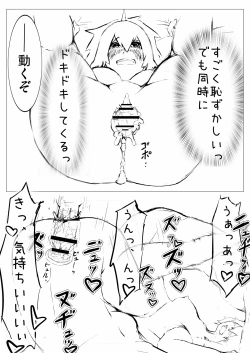 すごく恥ずかしいっ
でも同時に
ドキドキしてくるっ
――動くぞ
ゴポ…
ニュチ♡
うあっあっ♡
うんっ んっ♡
ズッ♡
ズズッ♡
ニュッ♡
ズッ♡
ヌチュッ♡
きっ♥気持ちいーいいい♡